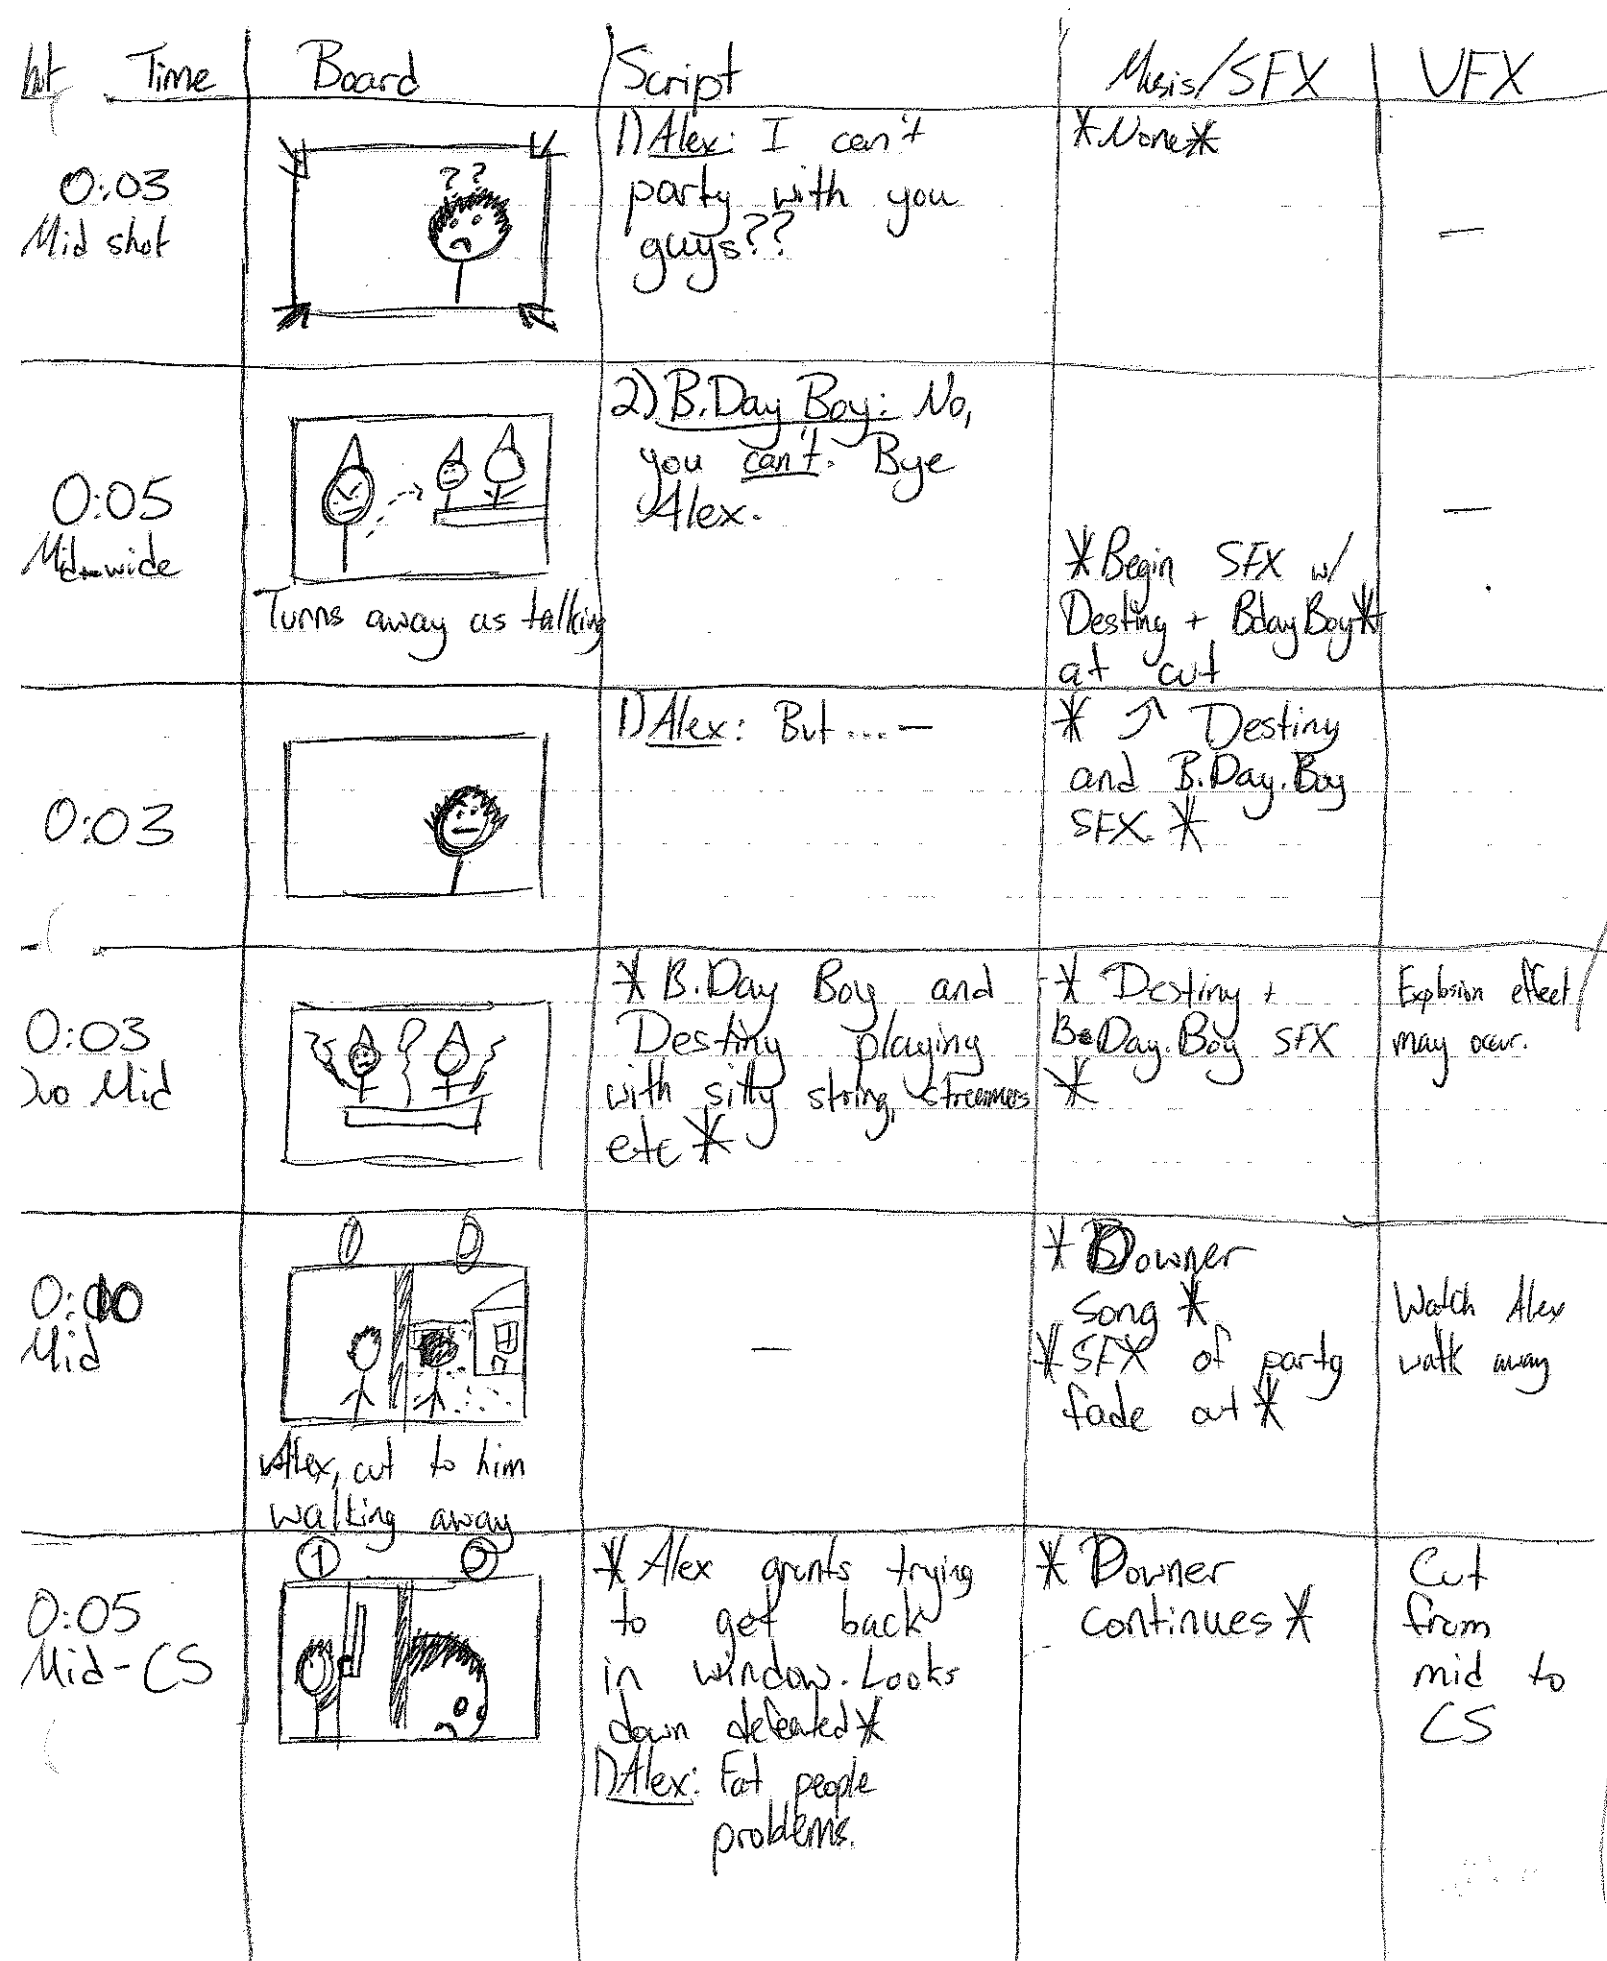 Time Board Script Music/SFX VFX
0:03
Mid shot
??
1) Alex: I can't
party with you
guys??
*None*
—
0:05
Mid-wide
Turns away as talking
2) B.Day Boy: No,
you can't. Bye
Alex.
*Begin SFX w/
Destiny + BdayBoy*
at cut
—
0:03
1) Alex: But...—
* ↗ Destiny
and B.Day.Boy
SFX. *
0:03
Two Mid
* B.Day Boy and
Destiny playing
with silly string, streamers
etc *
* Destiny +
B.Day.Boy SFX
*
Explosion effect
may occur.
0:10
Mid
Alex, cut to him
walking away
—
* Downer
song *
*SFX of party
fade out *
Watch Alex
walk away
0:05
Mid-CS
1 2
* Alex grunts trying
to get back
in window. Looks
down defeated*
1) Alex: Fat people
problems.
* Downer
continues *
Cut
from
mid to
CS